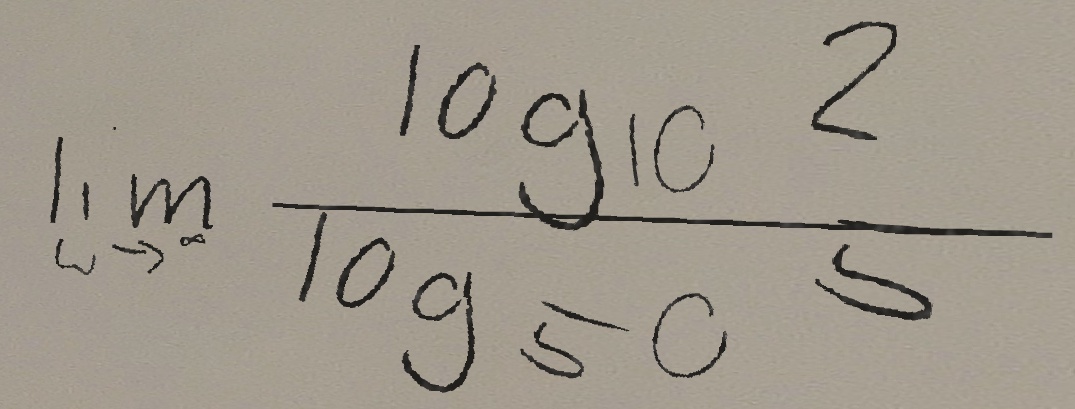 lim ω→∞ log₁₀ 2 / log₅₀ 5